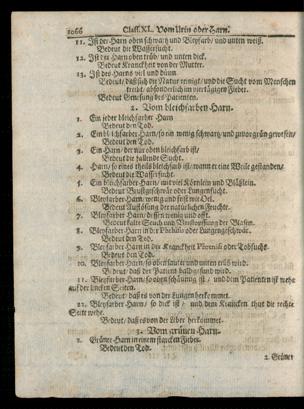 1066 Class. XI. Vom Urin oder Harn.
11. Ist der Harn oben schwartz und bleyfarb/ und unten weiß.
Bedeut die Wassersucht.
12. Ist der Harn oben trüb/ und unten dick.
Bedeut Kranckheit von der Mutter.
13. Ist des Harns viel und dünn
Bedeut/ daß sich die Natur reinigt/ und die Sucht vom Menschen
treibt/ absonderlich im viertägigen Fieber.
Bedeut Genesung des Patienten.
2. Vom bleichfarben Harn.
1. Ein jeder bleichfarber Harn
Bedeut den Tod.
2. Ein bleichfarber Harn/ so ein wenig schwartz/ und zuvor grün gewesen/
Bedeut den Tod.
3. Ein Harn/ der nur oben bleichfarb ist/
Bedeut die fallende Sucht.
4. Harn/ so eines theils bleichfarb ist/ wann er eine Weile gestanden/
Bedeut die Wassersucht.
5. Ein bleichfarber Harn/ mit viel Körnlein und Bläßlein.
Bedeut Brustgeschwär oder Lungensucht.
6. Bleyfarber Harn/ wenig und feist wie Oel.
Bedeut Auflösung der natürlichen Feuchte.
7. Bleyfarber Harn/ dessen wenig und offt.
Bedeut kalte Seuch und Verstopffung der Blasen.
8. Bleyfarber Harn in der Phthisi oder Lungengeschwär.
Bedeut den Tod.
9. Bleyfarber Harn in der Kranckheit Phrenisi oder Tobsucht.
Bedeut den Tod.
10. Bleyfarber Harn/ so oben lauter und unten trüb wird.
Bedeut/ daß der Patient bald gesund wird.
11. Bleyfarber Harn/ so oben schäumig ist/ und dem Patienten ist wehe
auf der lincken Seiten.
Bedeut/ daß es von der Lungen herkommet.
12. Bleyfarber Harn/ so dick ist/ und dem Krancken thut die rechte
Seite wehe.
Bedeut/ daß es von der Leber herkommet.
3. Vom grünen Harn.
1. Grüner Harn in einem starcken Fieber.
Bedeut den Tod.
2. Grüner